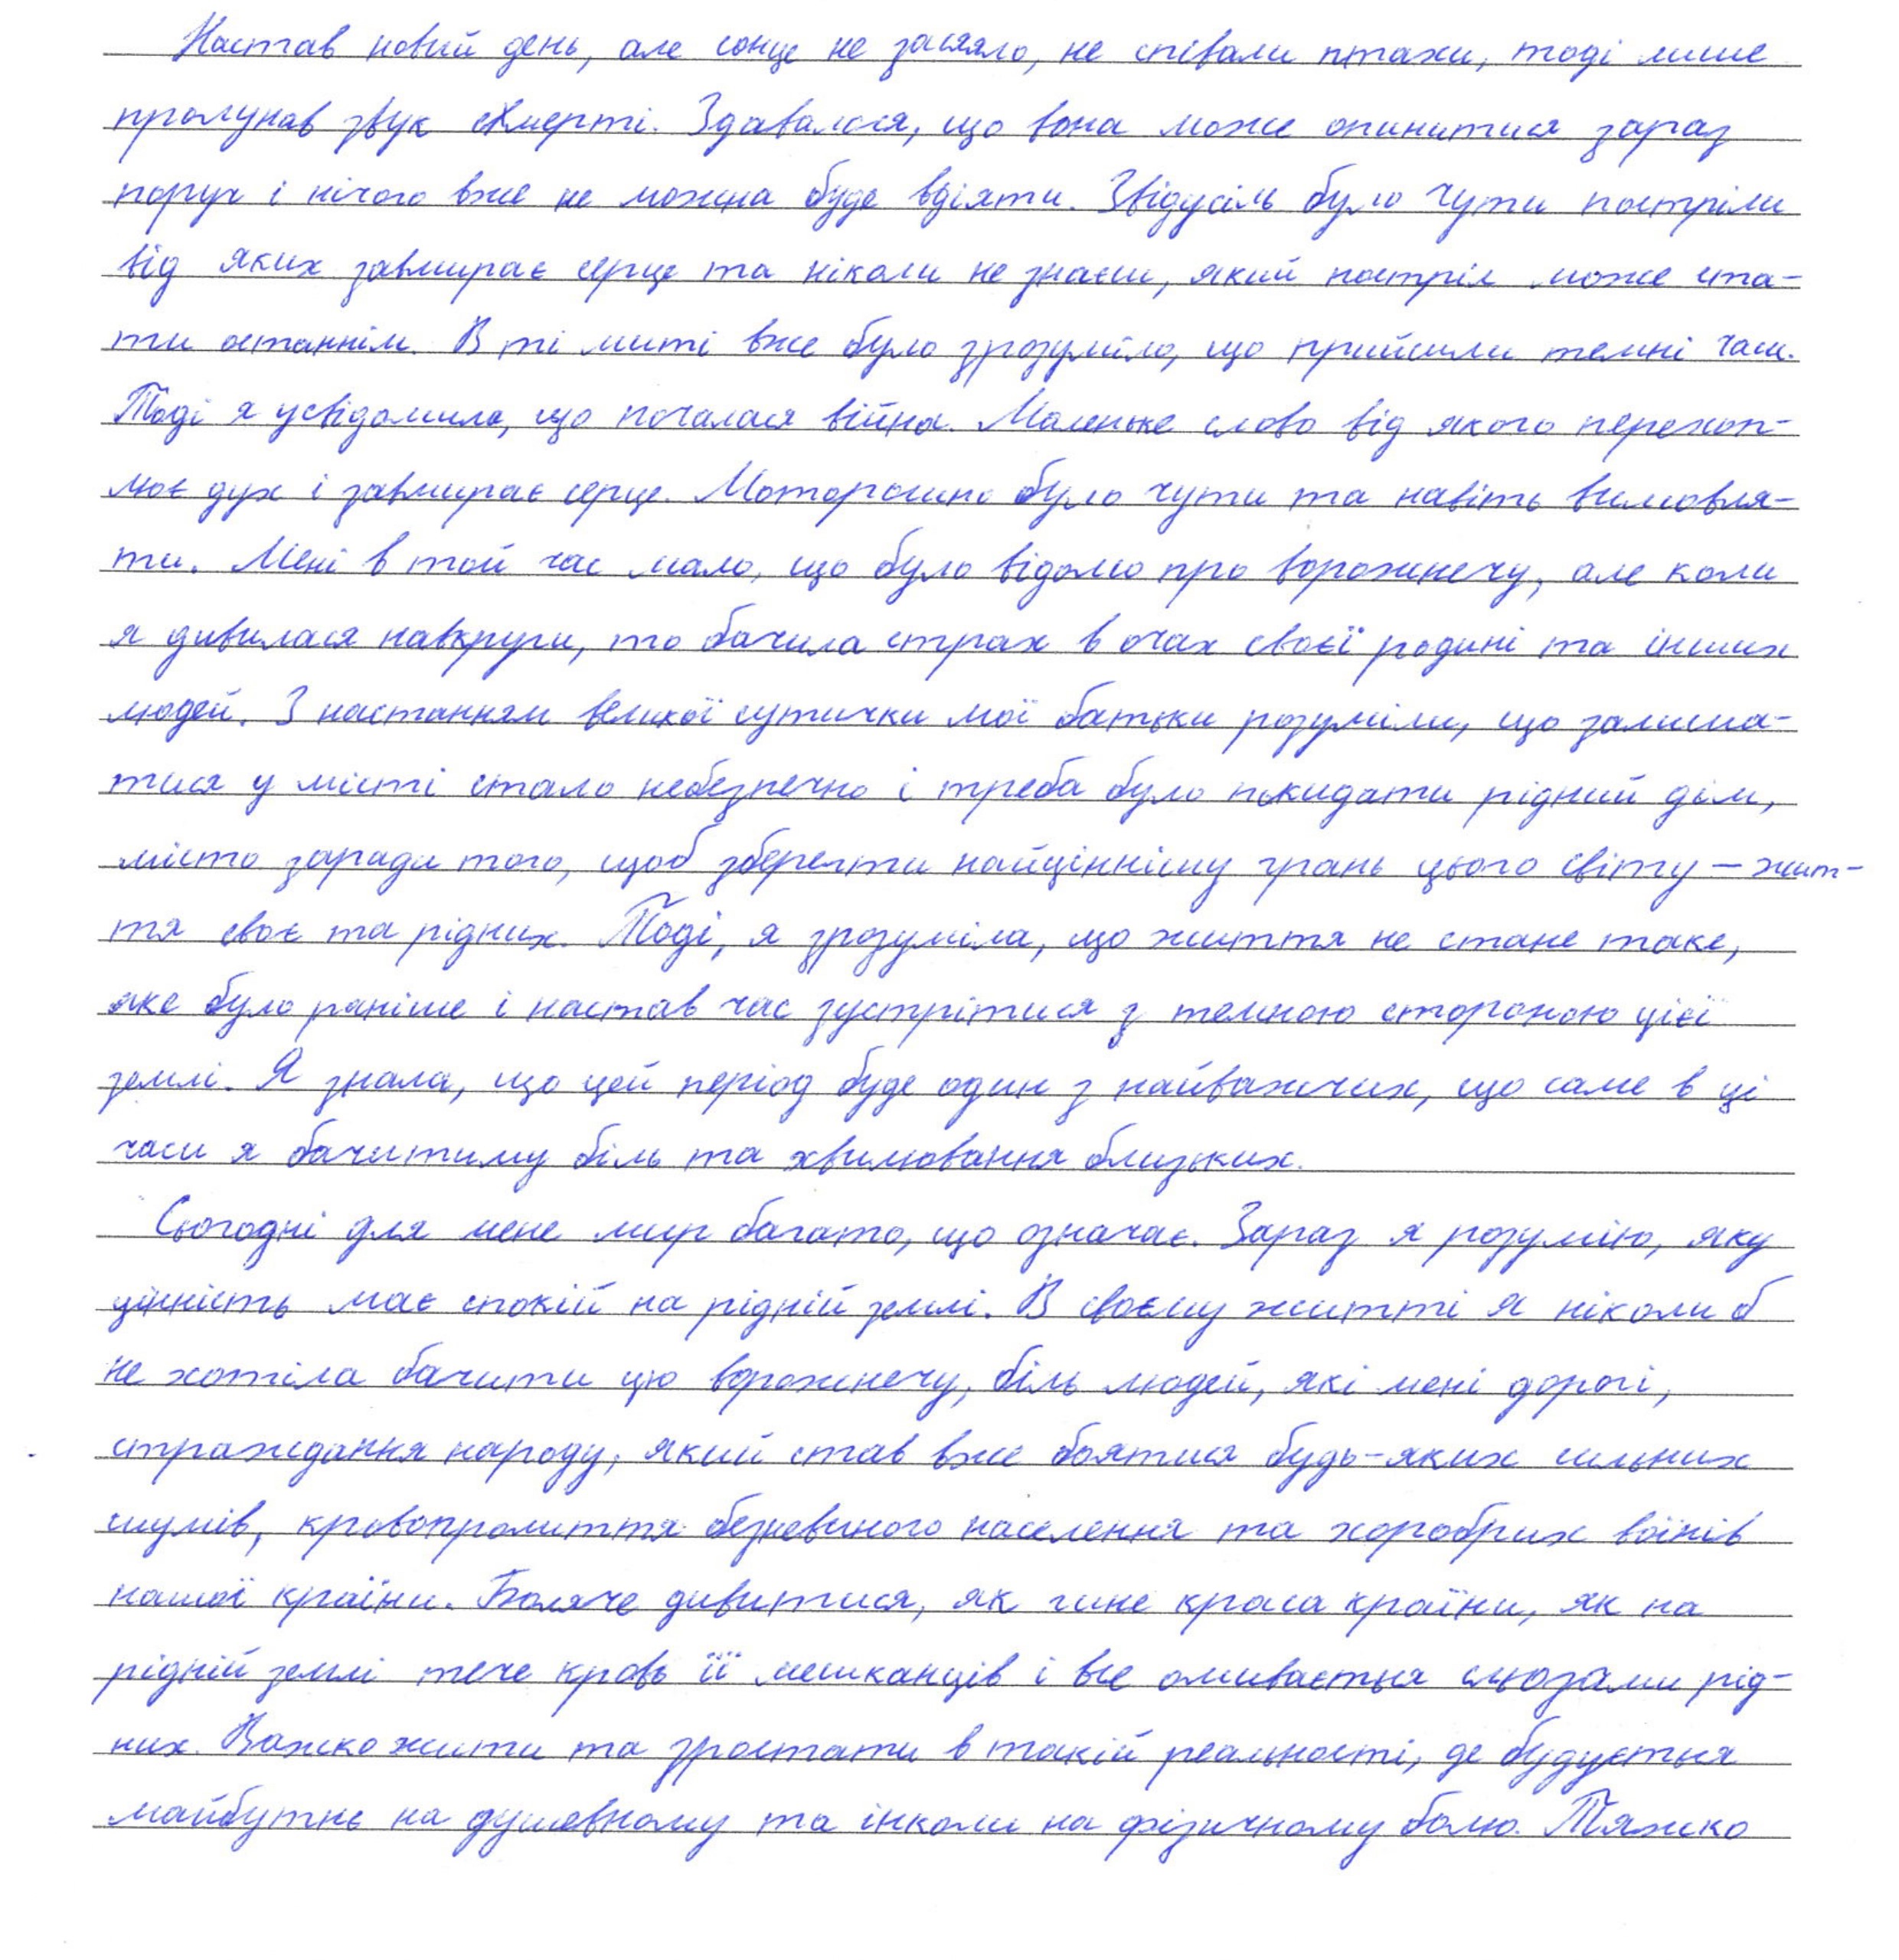 Настав новий день, але сонце не засяяло, не співали птахи, тоді лише
пролунав звук смерті. Здавалося, що вона може опинитися зараз
поруч і нічого вже не можна буде вдіяти. Звідусіль було чути постріли
від яких завмирає серце та ніколи не знаєш, який постріл може ста-
ти останнім. В ті миті вже було зрозуміло, що прийшли темні часи.
Тоді я усвідомила, що почалася війна. Маленьке слово від якого перехоп-
лює дух і завмирає серце. Моторошно було чути та навіть вимовля-
ти. Мені в той час мало, що було відомо про ворожнечу, але коли
я дивилася навкруги, то бачила страх в очах своєї родині та інших
людей. З настанням великої сутички мої батьки розуміли, що залиша-
тися у місті стало небезпечно і треба було покидати рідний дім,
місто заради того, щоб зберегти найціннішу грань цього світу – жит-
тя своє та рідних. Тоді, я зрозуміла, що життя не стане таке,
яке було раніше і настав час зустрітися з темною стороною цієї
землі. Я знала, що цей період буде один з найважчих, що саме в ці
часи я бачитиму біль та хвилювання близьких.
Сьогодні для мене мир багато, що означає. Зараз я розумію, яку
цінність має спокій на рідній землі. В своєму житті я ніколи б
не хотіла бачити цю ворожнечу, біль людей, які мені дорогі,
страждання народу, який став вже боятися будь-яких сильних
шумів, кровопролиття безневиного населення та хоробрих воїнів
нашої країни. Боляче дивитися, як гине краса країни, як на
рідній землі тече кровь її мешканців і все омивається сльозами рід-
них. Важко жити та зростати в такій реальності, де будується
майбутнє на душевному та інколи на фізичному болю. Тяжко